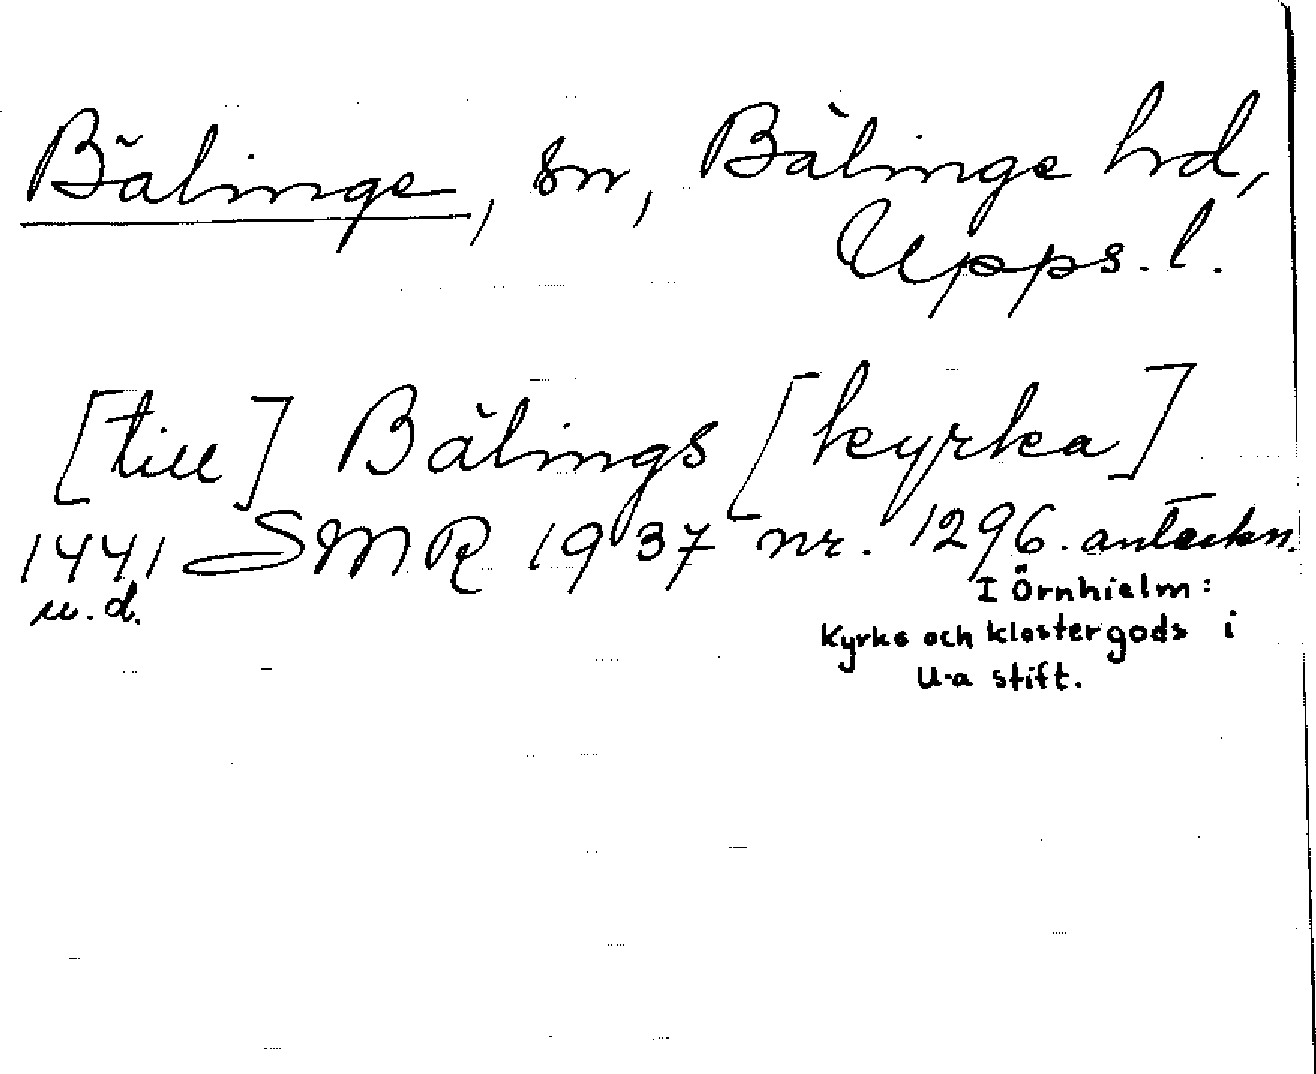 Bälinge, sn, Bälinge hd,
Upps. l.
[till] Bälings [kyrka]
1441 SMR 1937 nr. 1296. anteckn.
u. d.
I Örnhielm:
Kyrko och klostergods i
U-a stift.